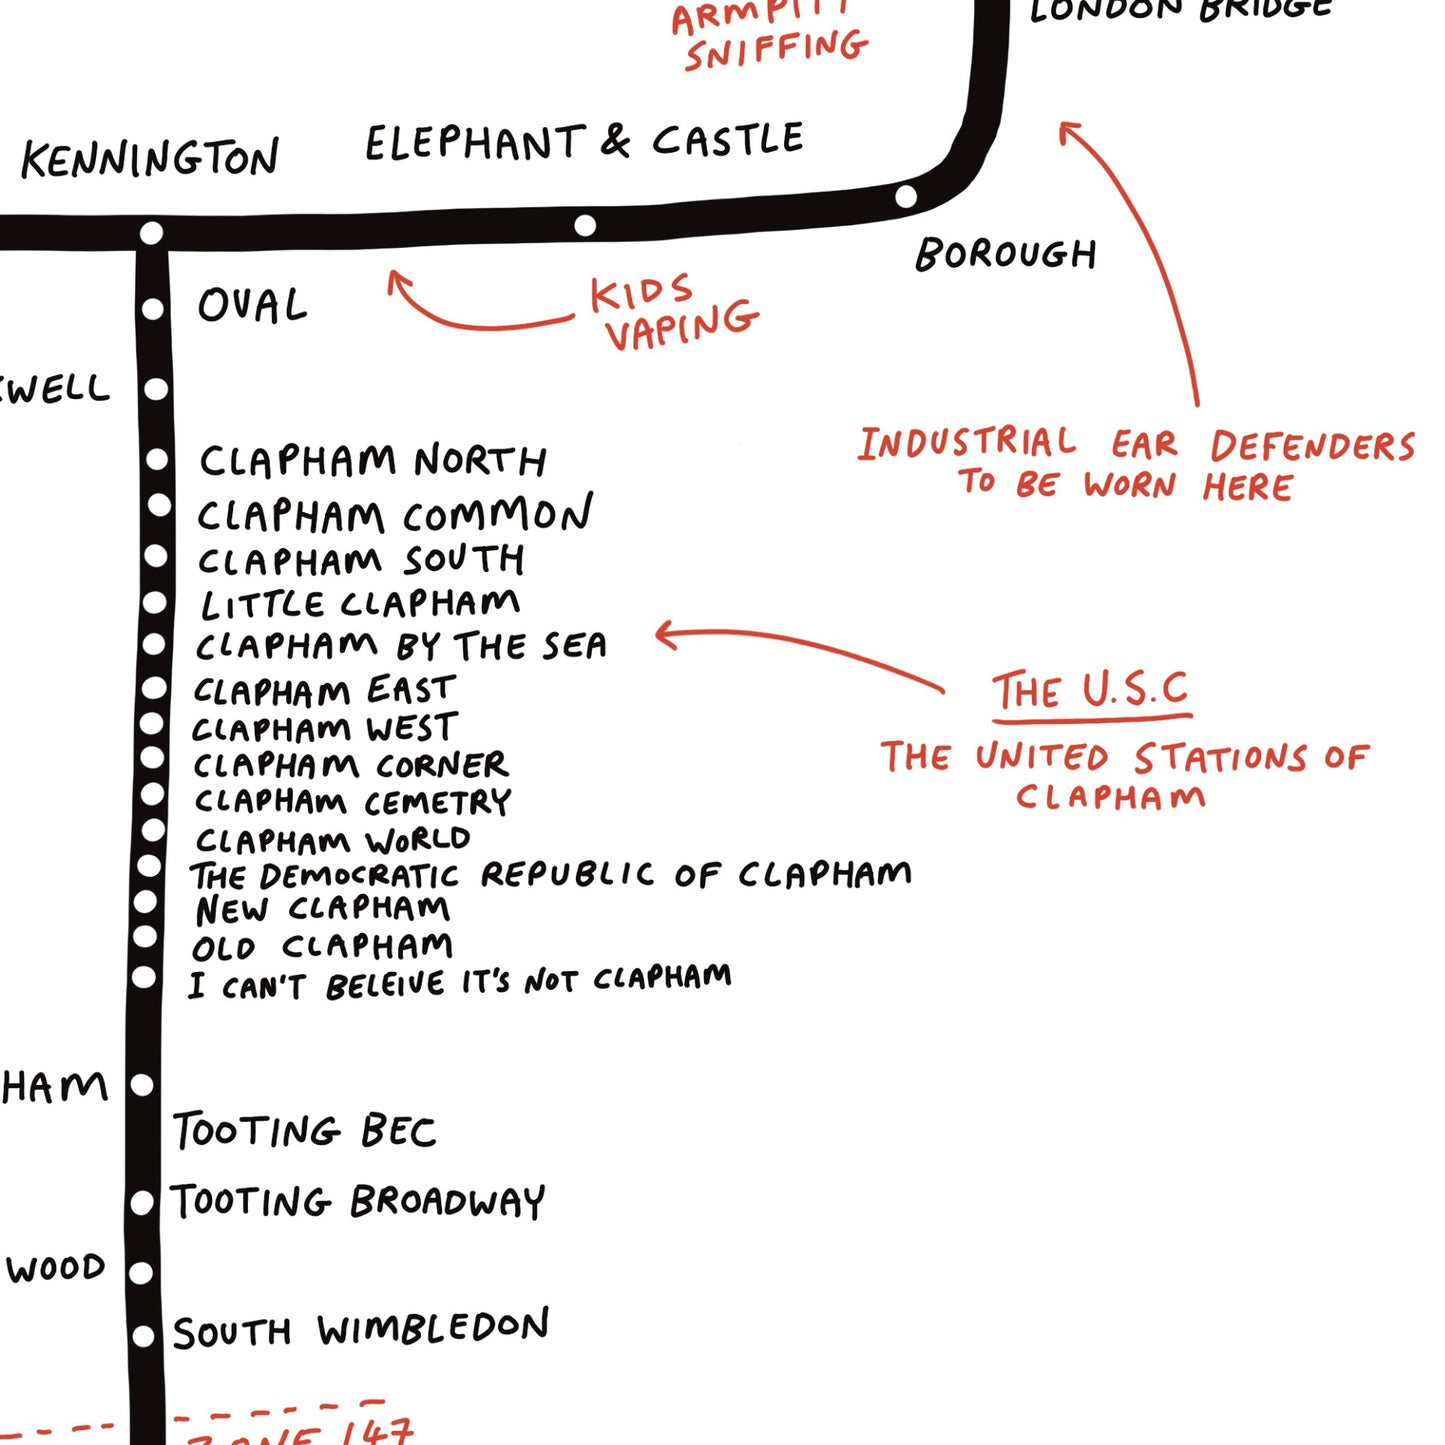 ARMPITT
SNIFFING
LONDON BRIDGE
KENNINGTON
ELEPHANT & CASTLE
BOROUGH
OVAL
KIDS
VAPING
KWELL
INDUSTRIAL EAR DEFENDERS
TO BE WORN HERE
CLAPHAM NORTH
CLAPHAM COMMON
CLAPHAM SOUTH
LITTLE CLAPHAM
CLAPHAM BY THE SEA
CLAPHAM EAST
CLAPHAM WEST
CLAPHAM CORNER
CLAPHAM CEMETRY
CLAPHAM WORLD
THE DEMOCRATIC REPUBLIC OF CLAPHAM
NEW CLAPHAM
OLD CLAPHAM
I CAN'T BELEIVE IT'S NOT CLAPHAM
THE U.S.C
THE UNITED STATIONS OF
CLAPHAM
HAM
TOOTING BEC
TOOTING BROADWAY
WOOD
SOUTH WIMBLEDON
ZONE 147